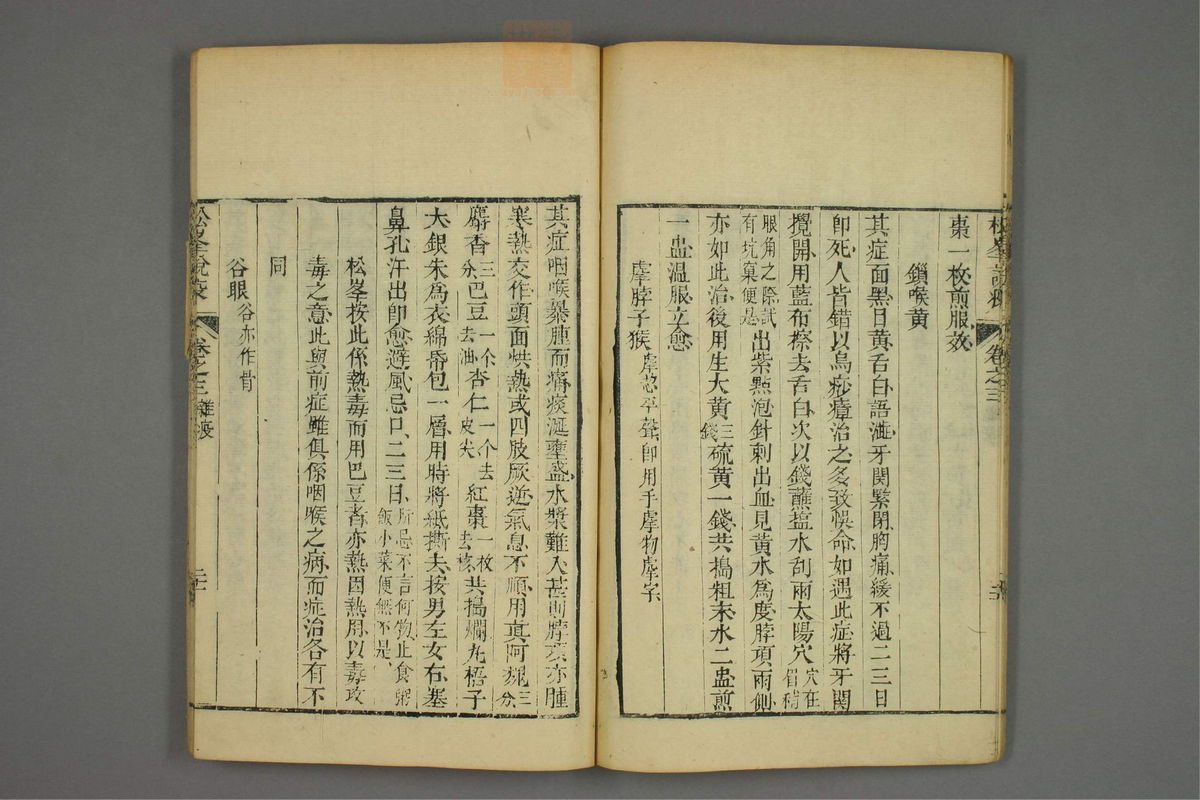 松峯說疫 卷之三
棗一枚煎服效
鎖喉黃
其症面黑目黃舌白語澁牙関緊閉胸痛緩不過二三日
即死人皆錯以烏痧瘴治之多致悞命如遇此症將牙関
撬開用藍布擦去舌白次以錢蘸塩水刮兩太陽穴穴在眉稍
眼角之際試有坑窠便是出紫點泡針刺出血見黃水為度脖項兩側
亦如此治後用生大黃三錢硫黃一錢共搗粗末水二盅煎
一盅溫服立愈
㨭脖子猴㨭蕊平聲即用手㨭物㨭字
其症咽喉暴腫而痛痰涎壅盛水漿難入甚則脖項亦腫
寒熱交作頭面烘熱或四肢厥逆氣息不順用真阿魏三分
麝香三分巴豆一个去油杏仁一个去皮尖紅棗一枚去核共搗爛丸梧子
大銀朱為衣綿帋包一層用時將紙撕去按男左女右塞
鼻孔汗出即愈避風忌口二三日所忌不言何物止食粥飯小菜便無不是
松峯按此係熱毒而用巴豆者亦熱因熱用以毒攻
毒之意此與前症雖俱係咽喉之病而症治各有不
同
谷眼谷亦作骨
松峯說疫 卷之三 雜疫 二十一